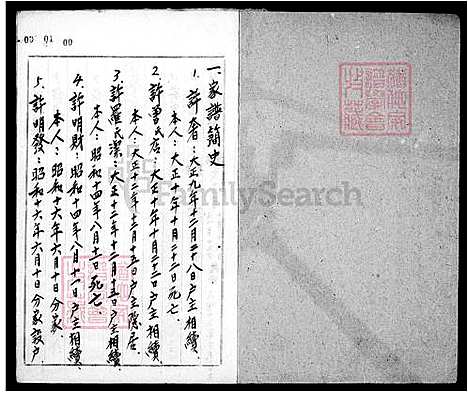 一、家譜簡史
1. 許奢：大正九年十二月二十八日户主相續、
本人：大正十年十月二十二日死亡、
2. 許曾氏店：大正十年十月二十二日户主相續、
本人：大正十二年十二月十五日户主隱居
3. 許羅氏潔：大正十二年十二月十五日户主相續、
本人：昭和十四年八月十一日死亡、
4. 許明財：昭和十四年八月十一日户主相續、
本人：昭和十六年六月十日分家、
5. 許明發：昭和十六年六月十日分家設户
00 01 00
FamilySearch